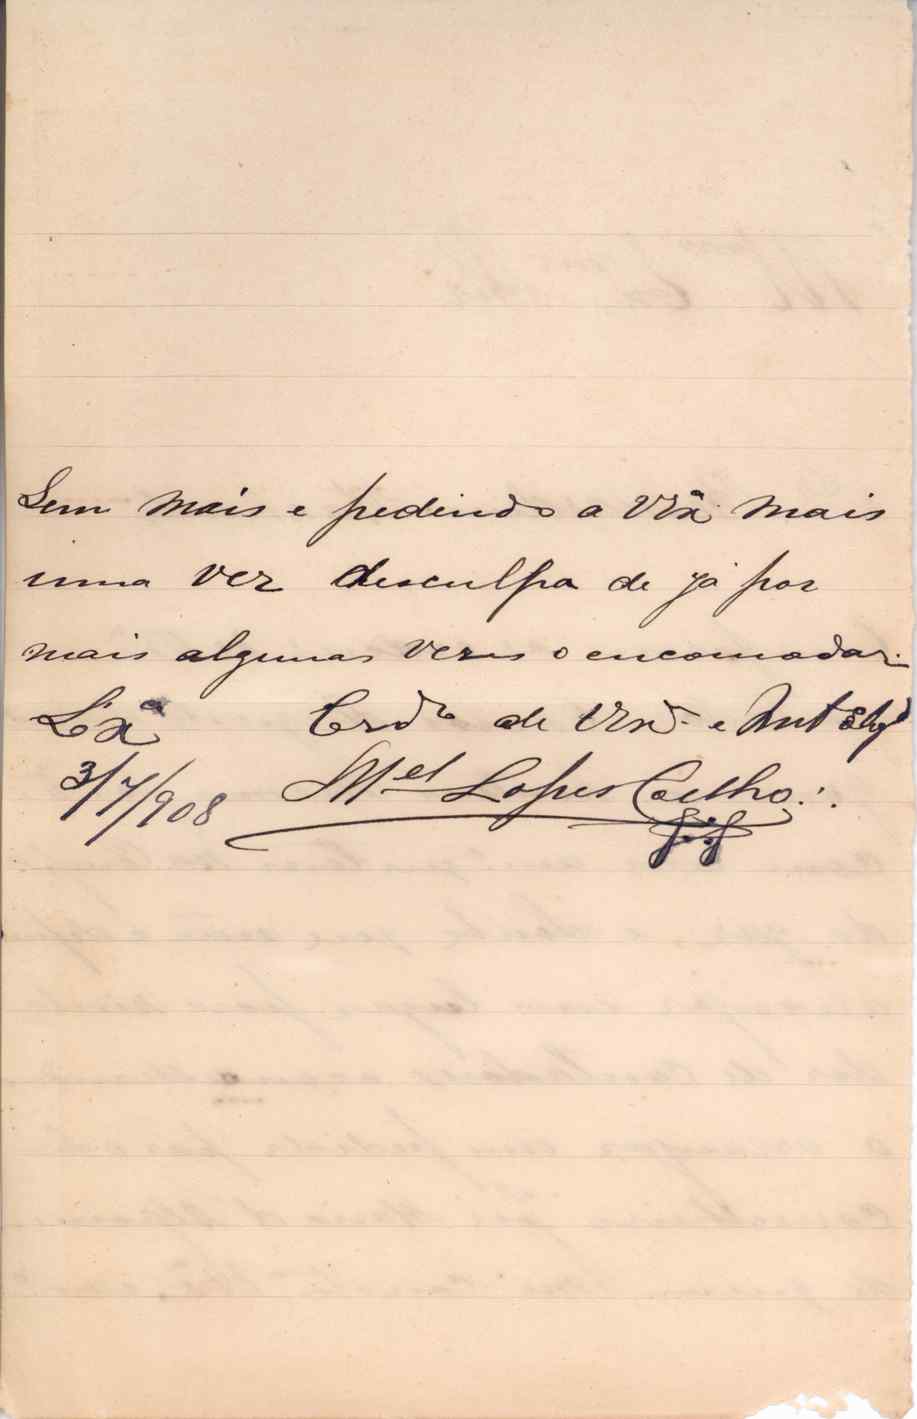 Sem mais e pedindo a VExª mais
uma vez desculpa de já por
mais algumas vezes o encomodar.
Lxª Crdº de VExª e Mut Obgd
3/7/908 Mel Lopes Coelho